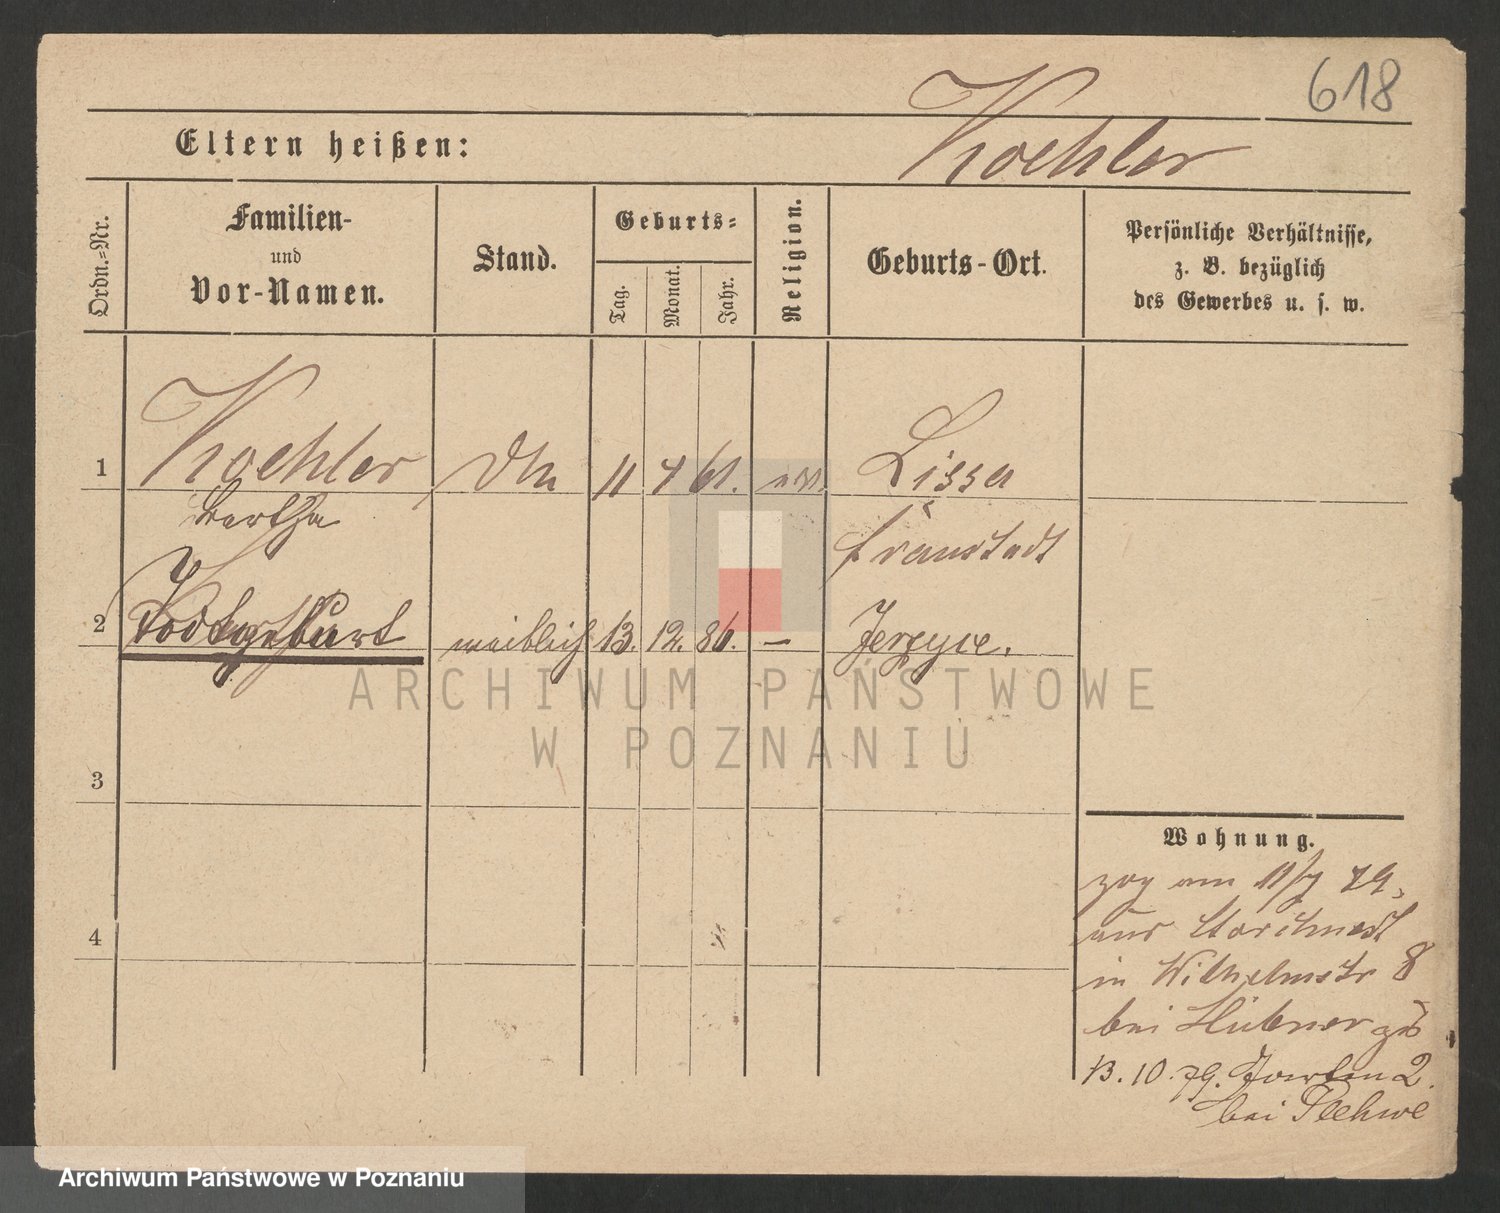 618
Eltern heißen: Koehler
Ordn.-Nr.
Familien-
und
Vor-Namen.
Stand.
Geburts-
Tag.
Monat.
Jahr.
Religion.
Geburts-Ort.
Persönliche Verhältnisse,
z. B. bezüglich
des Gewerbes u. s. w.
1 Koehler 11 61. Lissa
Bertha
Fraustadt
2 Todtgeburt weiblich 13. 12. 86. – Jerzyce.
ARCHIWUM PAŃSTWOWE
W POZNANIU
3
4
Wohnung.
zog am 11/7 79
aus
in Wilhelmstr 8
bei Hübner
13.10.79. 2.
bei
Archiwum Państwowe w Poznaniu